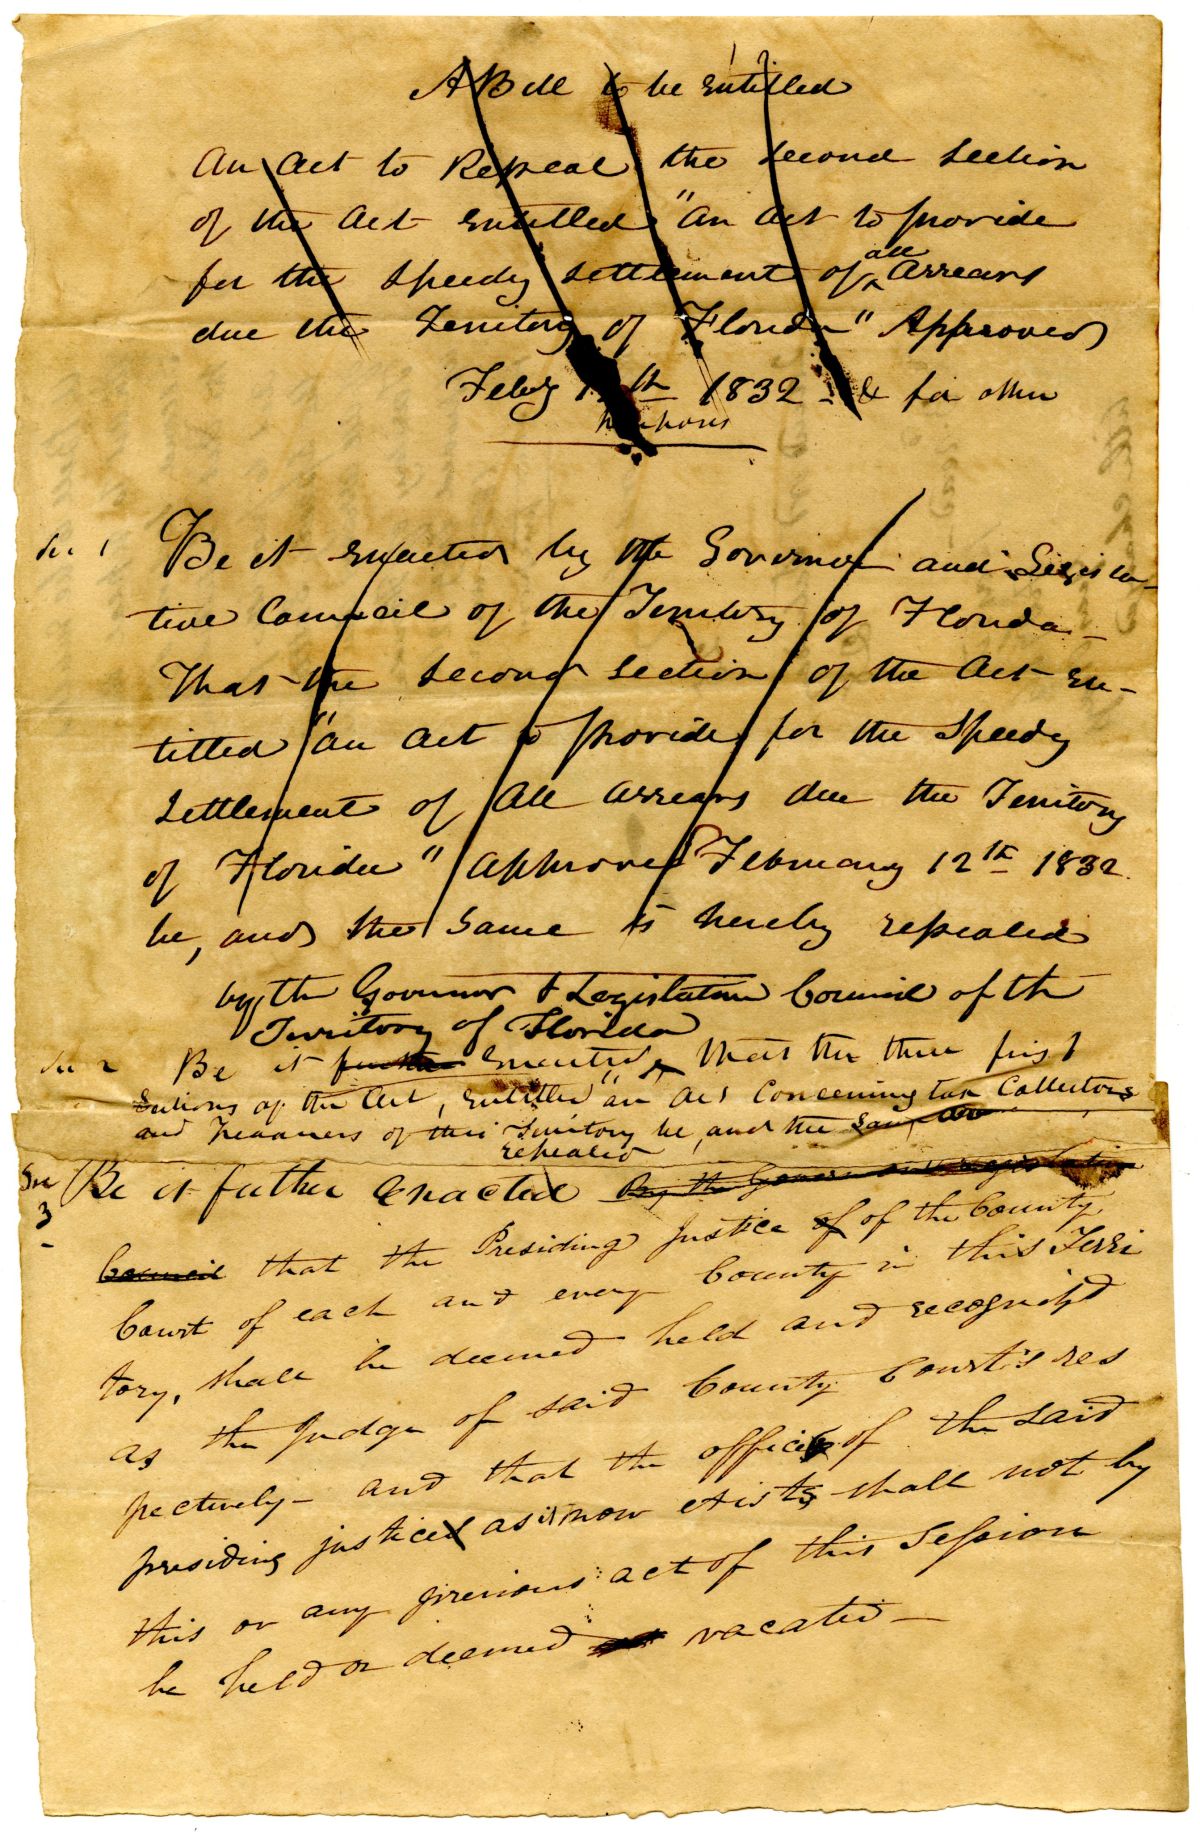 A Bill to be entitled
An Act to Repeal the second section
of the Act entitled "An Act to provide
for the speedy settlement of all Arrears
due the Territory of Florida" Approved
Feby 12th 1832 - & for other
purposes
Sec 1 Be it enacted by the Governor and Legisla-
tive Council of the Territory of Florida -
That the second section of the Act En-
titled "An Act to provide for the Speedy
Settlement of All arrears due the Territory
of Florida" approved February 12th 1832.
be, and the same is hereby repealed
by the Governor & Legislative Council of the
Territory of Florida
Sec 2 Be it further Enacted, that the three first
Sections of the Act, entitled "an Act Concerning tax Collectors
and Treasurers of this Territory be, and the same are
repealed
Sec 3 Be it futher Enacted By the Governor and Legislative
Council that the Presiding Justice of of the County
Court of each and every County in this Terri
tory, shall be deemed held and recognizd
as the Judge of said County Court's res
pectively - and that the office of the said
presiding justice as it now exists shall not by
this or any previous act of this Session
be held or deemed vacated -